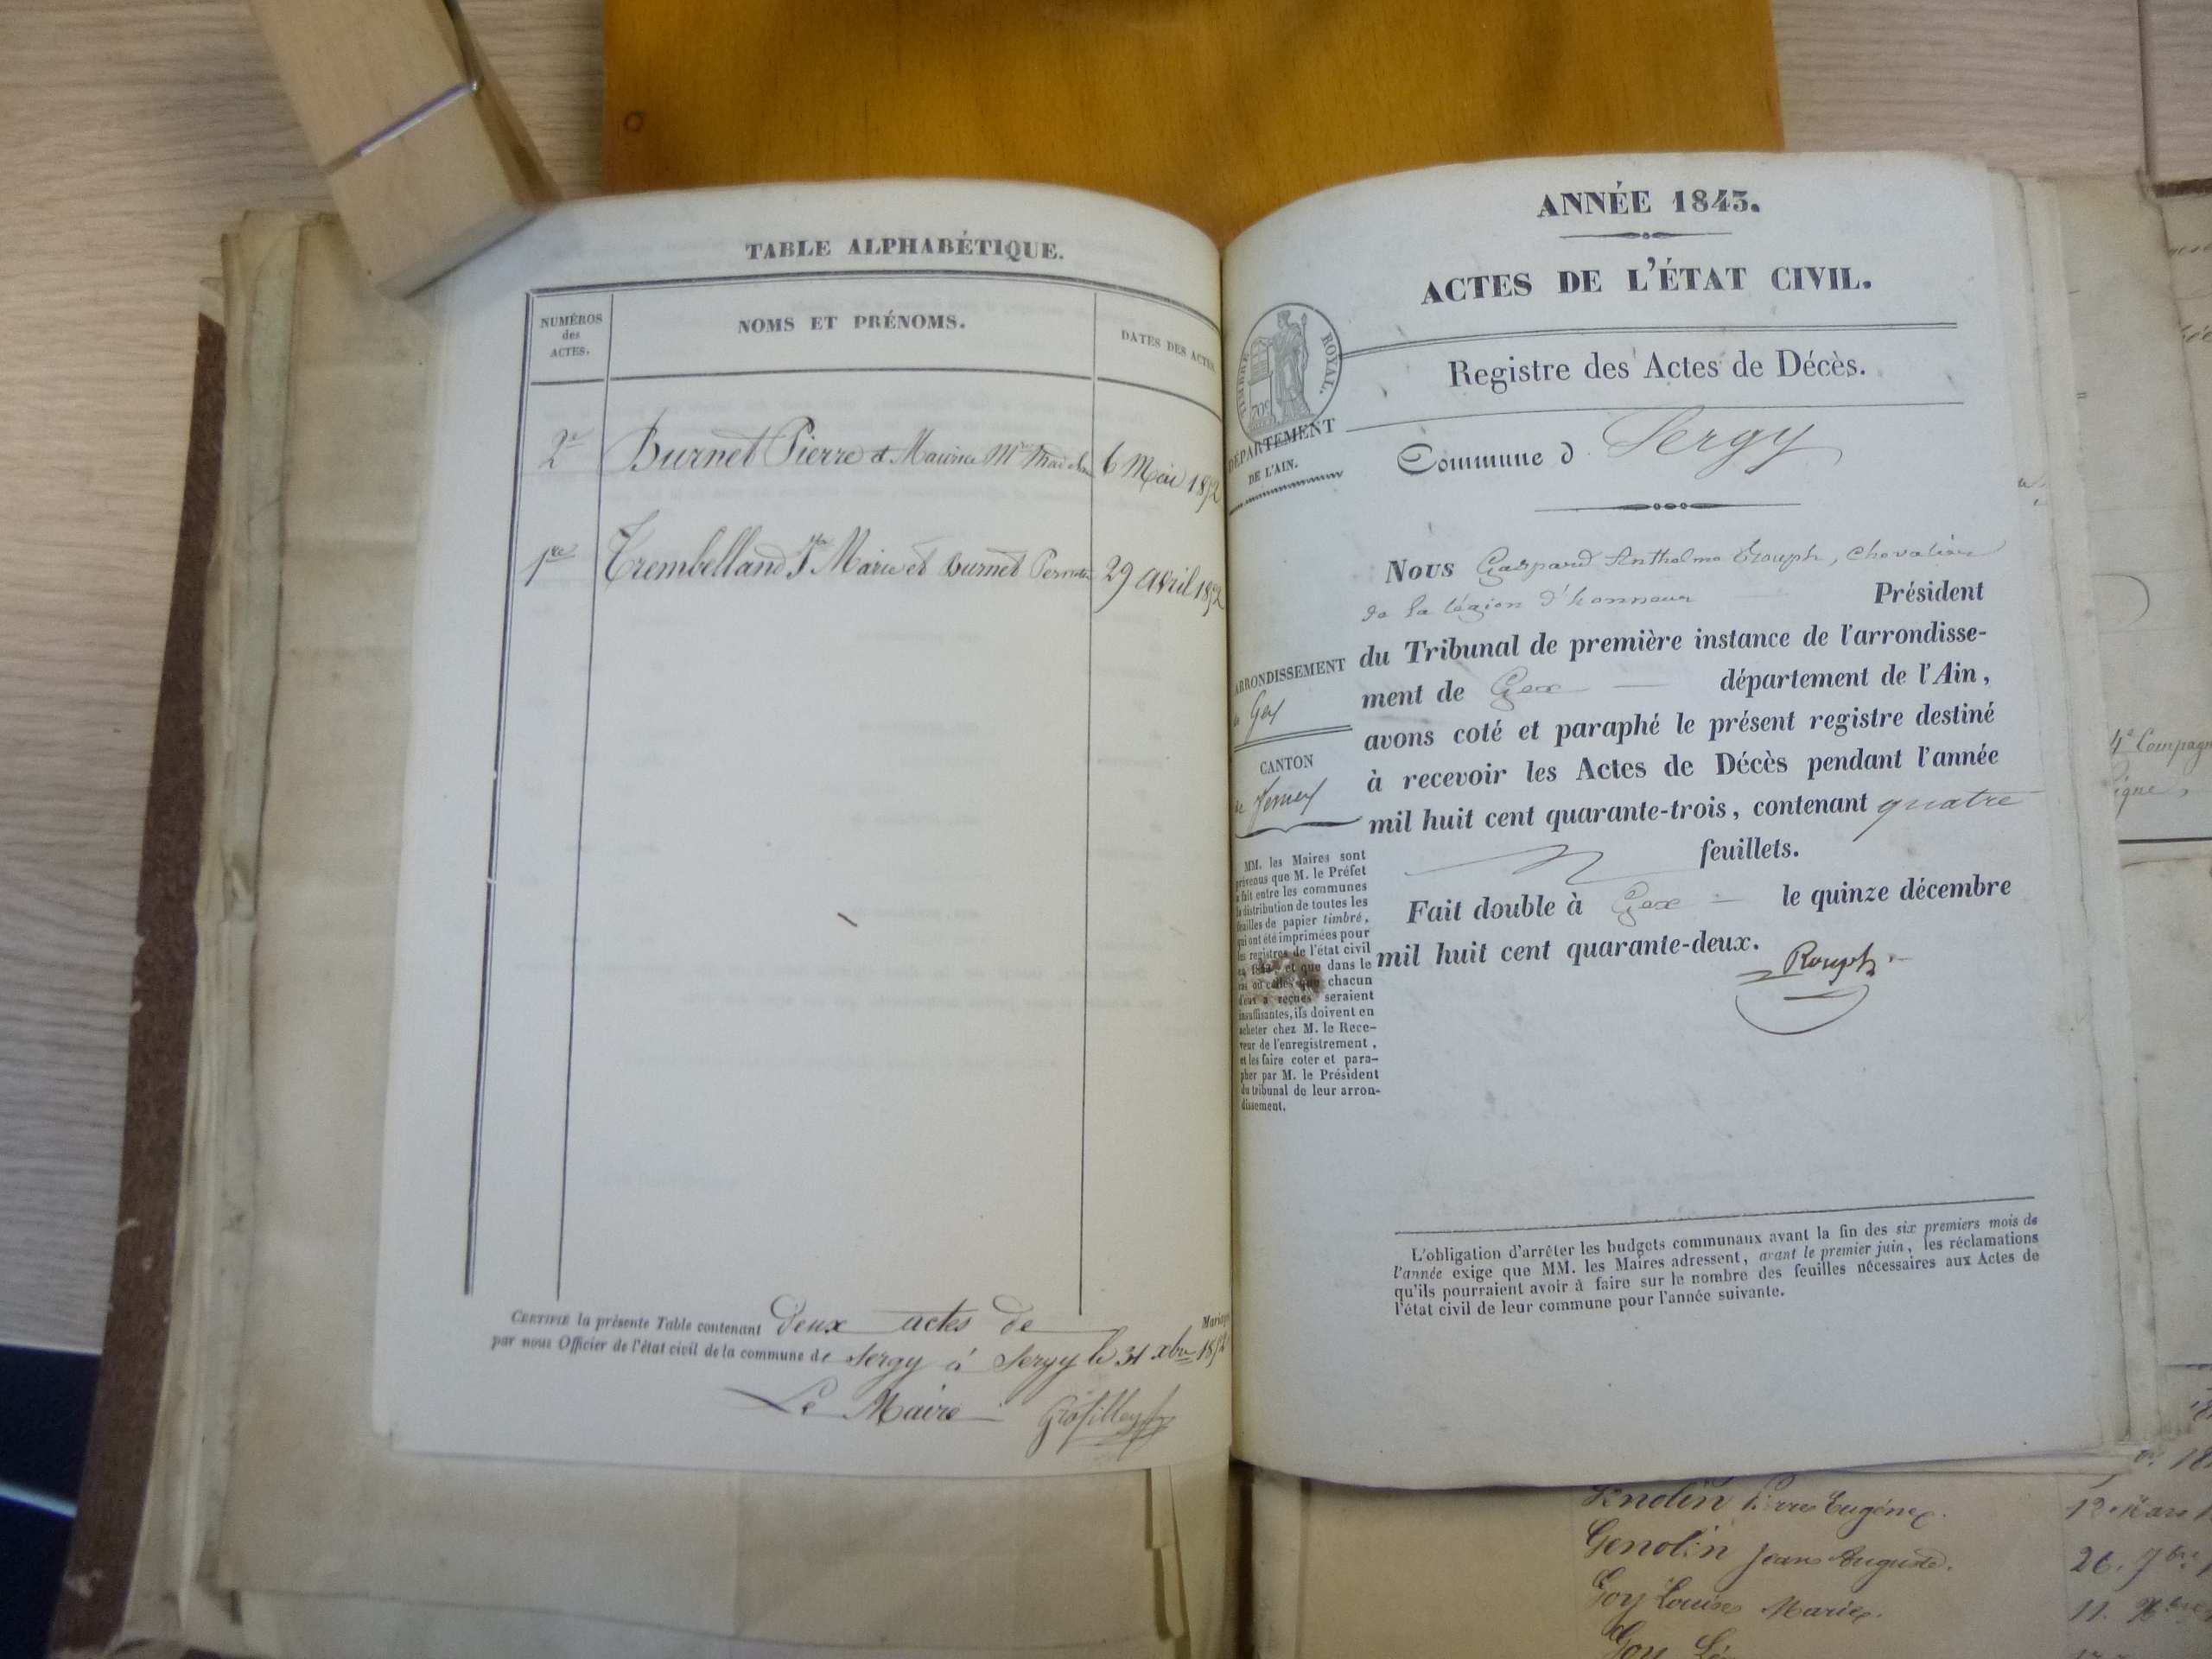 TABLE ALPHABÉTIQUE.
NUMÉROS
des
ACTES.
NOMS ET PRÉNOMS.
DATES DES ACTES.
2e Burnet Pierre et Maurice 6 Mai 1852
1re Trembelland Marie et Burnet 29 avril 1852
CERTIFIÉ la présente Table contenant deux actes de Mariage
par nous Officier de l'état civil de la commune de Sergy à Sergy le 31 xbre 1852
Le Maire Grosfilley
ANNÉE 1843.
ACTES DE L'ÉTAT CIVIL.
TIMBRE ROYAL.
70c
Registre des Actes de Décès.
DÉPARTEMENT
DE L'AIN.
Commune d Sergy
Nous Gaspard Anthelme Rouph, chevalier
de la légion d'honneur Président
du Tribunal de première instance de l'arrondisse-
ment de Gex département de l'Ain,
avons coté et paraphé le présent registre destiné
à recevoir les Actes de Décès pendant l'année
mil huit cent quarante-trois, contenant quatre
feuillets.
Fait double à Gex le quinze décembre
mil huit cent quarante-deux.
Rouph
ARRONDISSEMENT
de Gex
CANTON
de Ferney
MM. les Maires sont
prévenus que M. le Préfet
a fait entre les communes
la distribution de toutes les
feuilles de papier timbré,
qui ont été imprimées pour
les registres de l'état civil
et que dans le
cas où celles que chacun
d'eux a reçues seraient
insuffisantes, ils doivent en
acheter chez M. le Rece-
veur de l'enregistrement,
et les faire coter et para-
pher par M. le Président
du tribunal de leur arron-
dissement.
L'obligation d'arrêter les budgets communaux avant la fin des six premiers mois de
l'année exige que MM. les Maires adressent, avant le premier juin, les réclamations
qu'ils pourraient avoir à faire sur le nombre des feuilles nécessaires aux Actes de
l'état civil de leur commune pour l'année suivante.
4e Compagn
ligne,
Genolin Pierre Eugène. 12 Mars
Genolin Jean Auguste. 26. 7bre
Goy Louise Marie. 11.
Goy